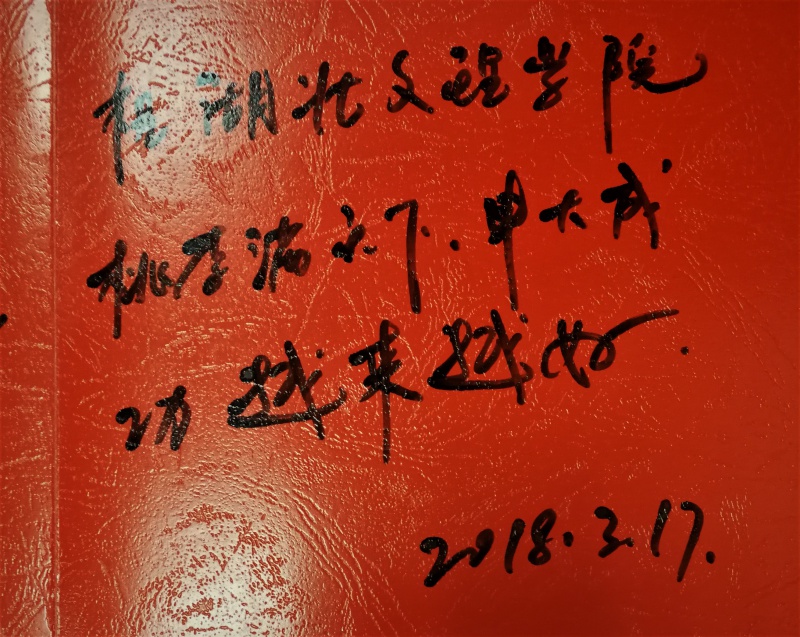 祝湖北文理学院
桃李满天下.申大成
功越来越好.
2018.3.17.